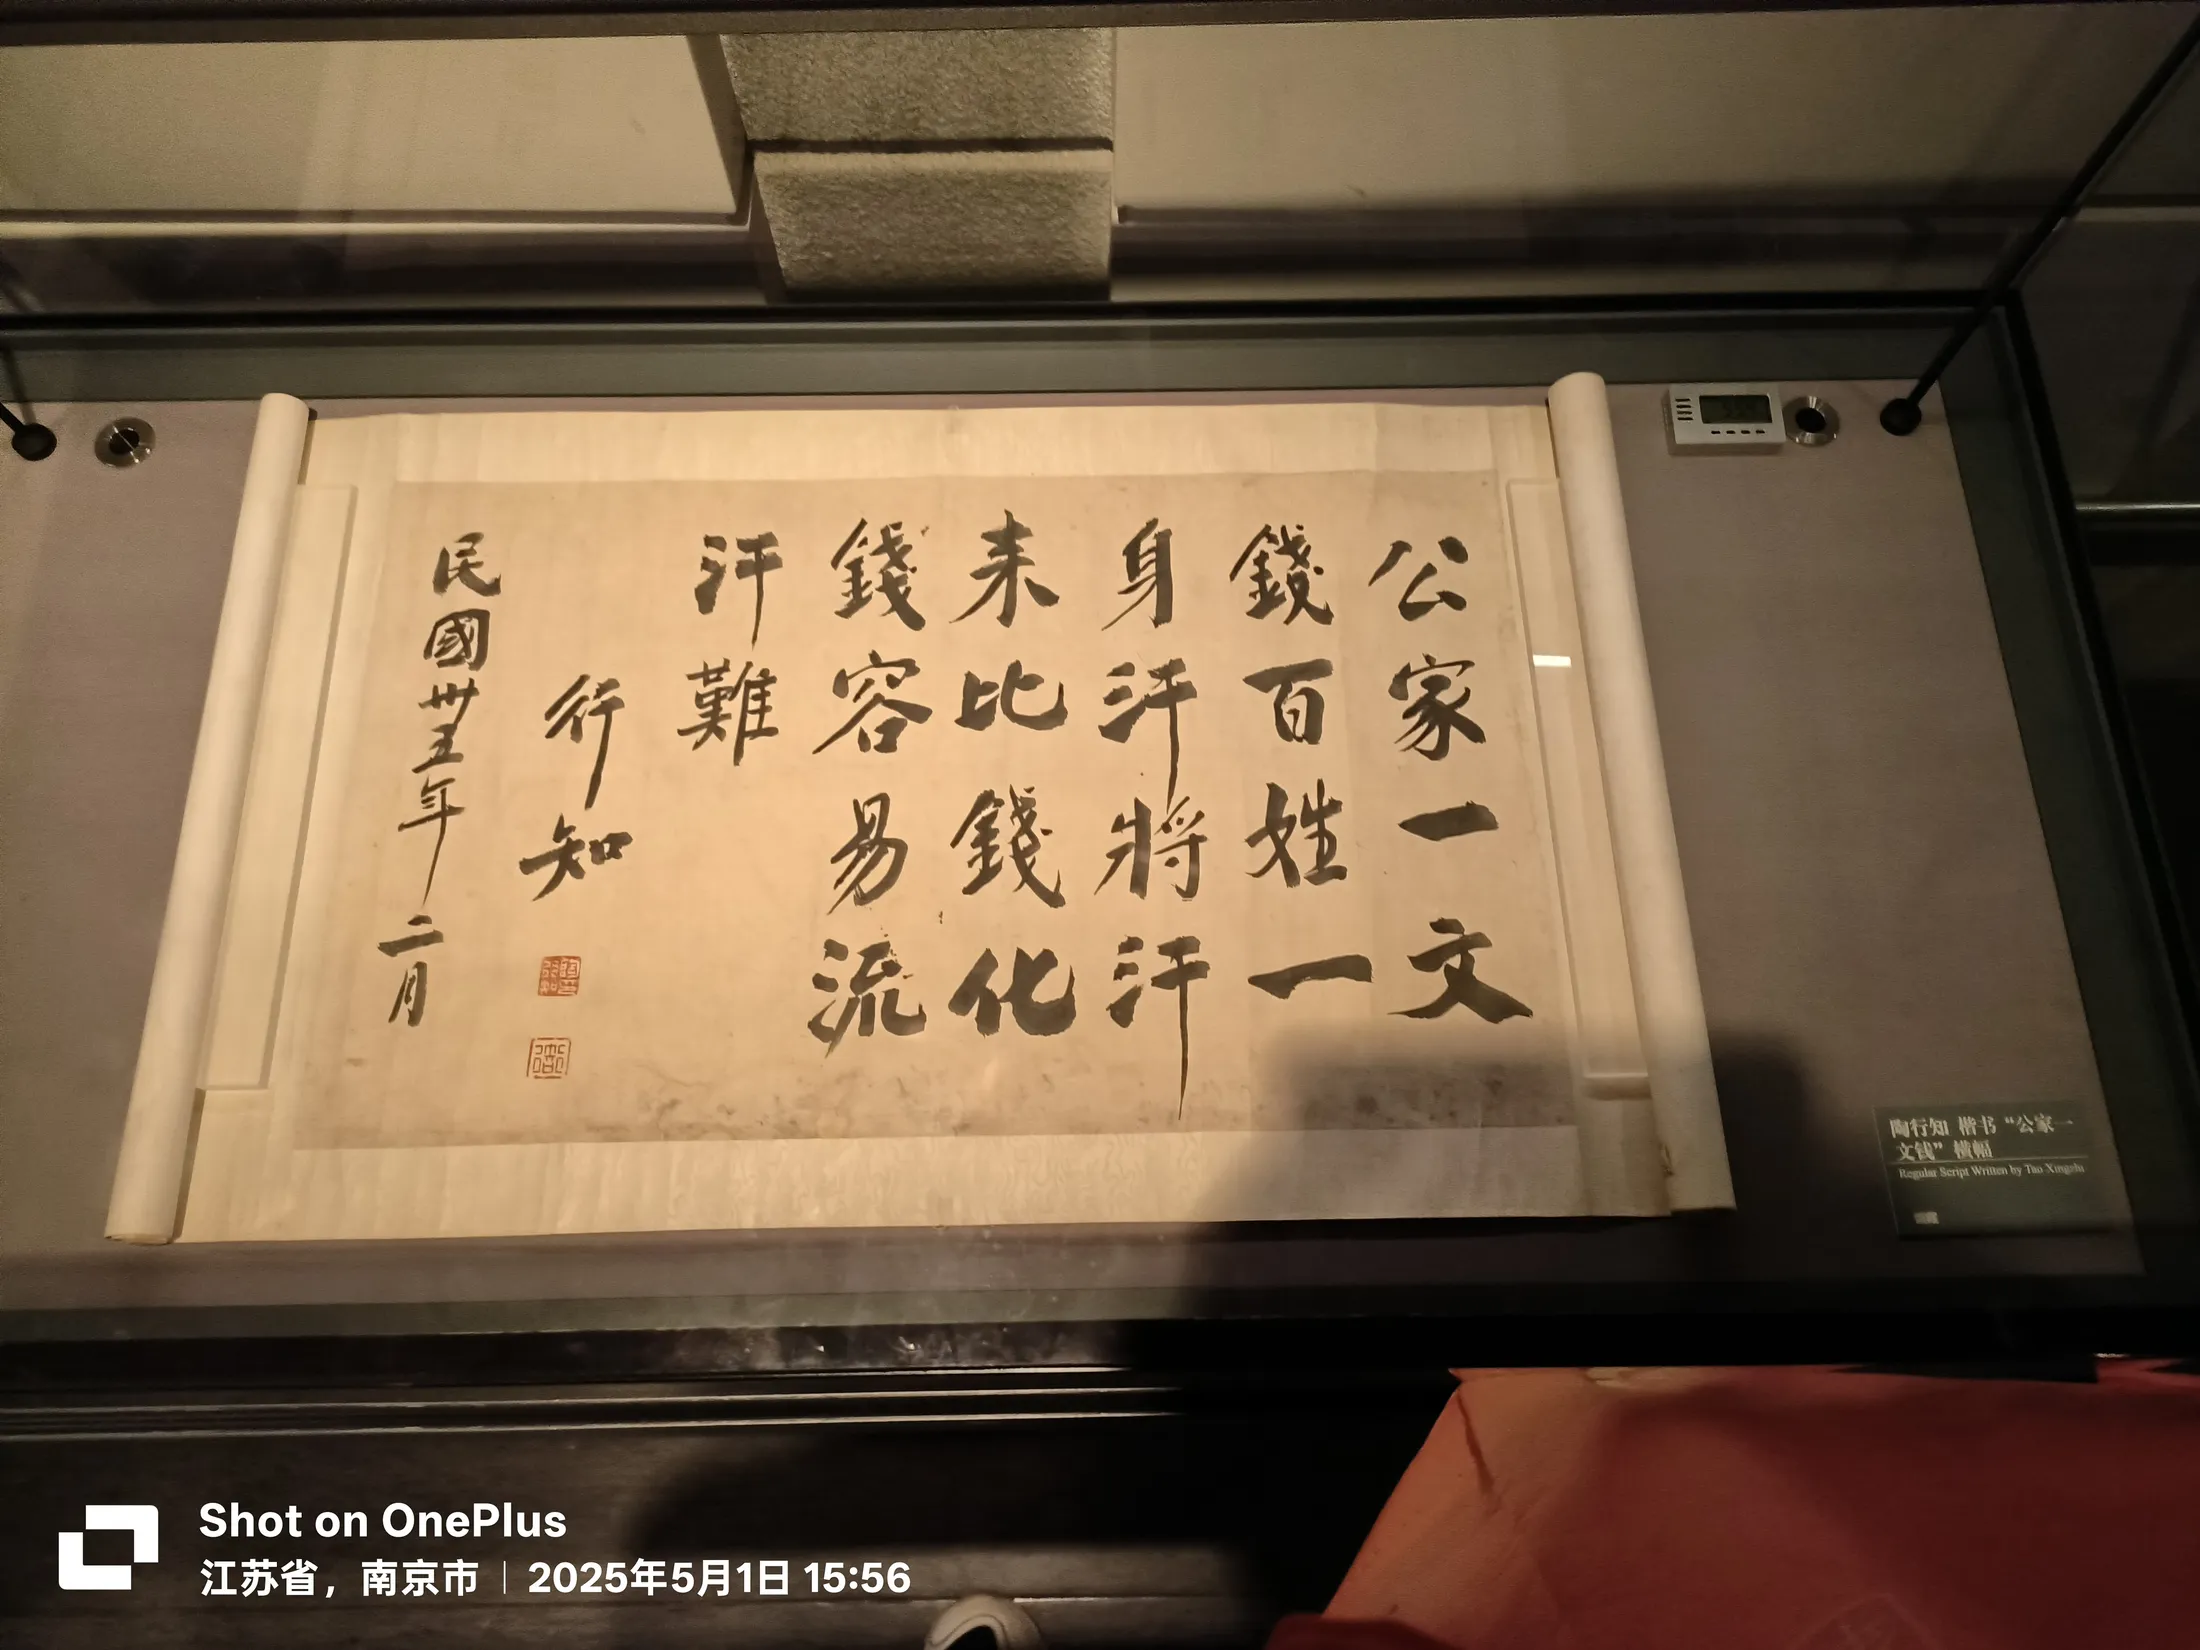 公家一文
錢百姓一
身汗將汗
来比錢化
錢容易流
汗難
行知
民國卅五年二月
陶行知 楷书“公家一
文钱”横幅
Regular Script Written by Tao Xingzhi
Shot on OnePlus
江苏省，南京市｜2025年5月1日 15:56